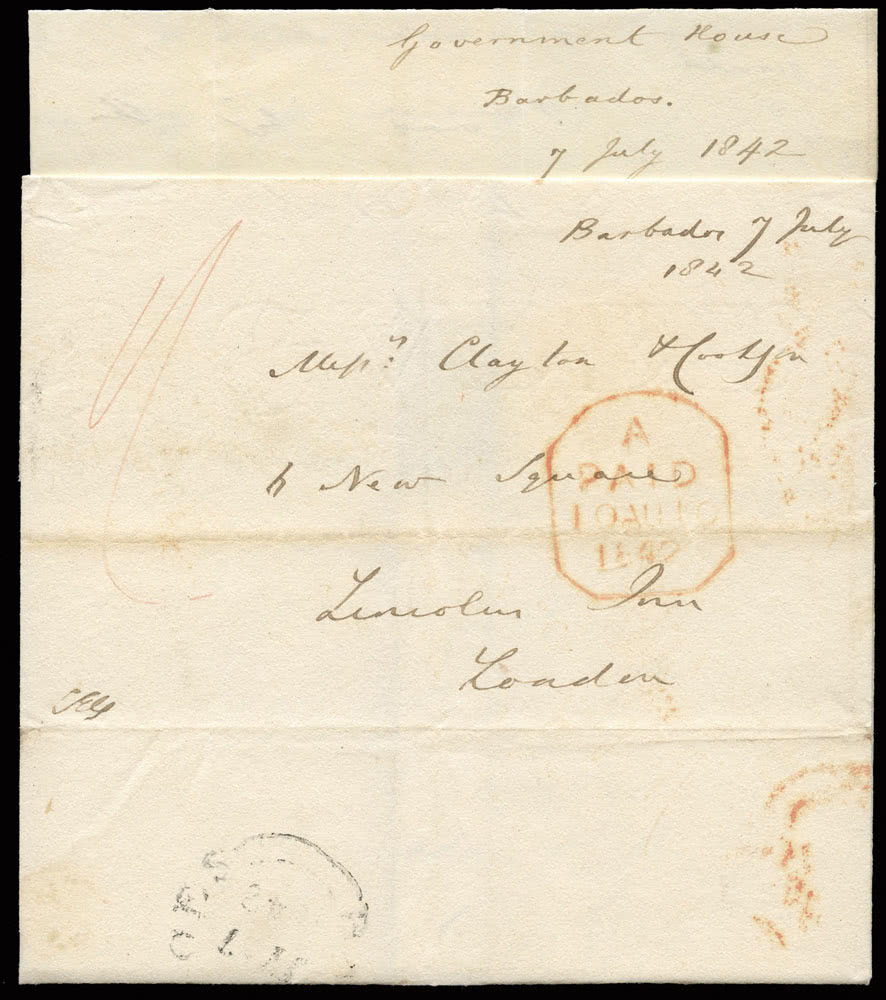 Government House
Barbados.
7 July 1842
Barbados 7 July
1842
Messrs. Clayton & Cookson
6 New Square
Lincolns Inn
London
A
PAID
10 AU 10
1842